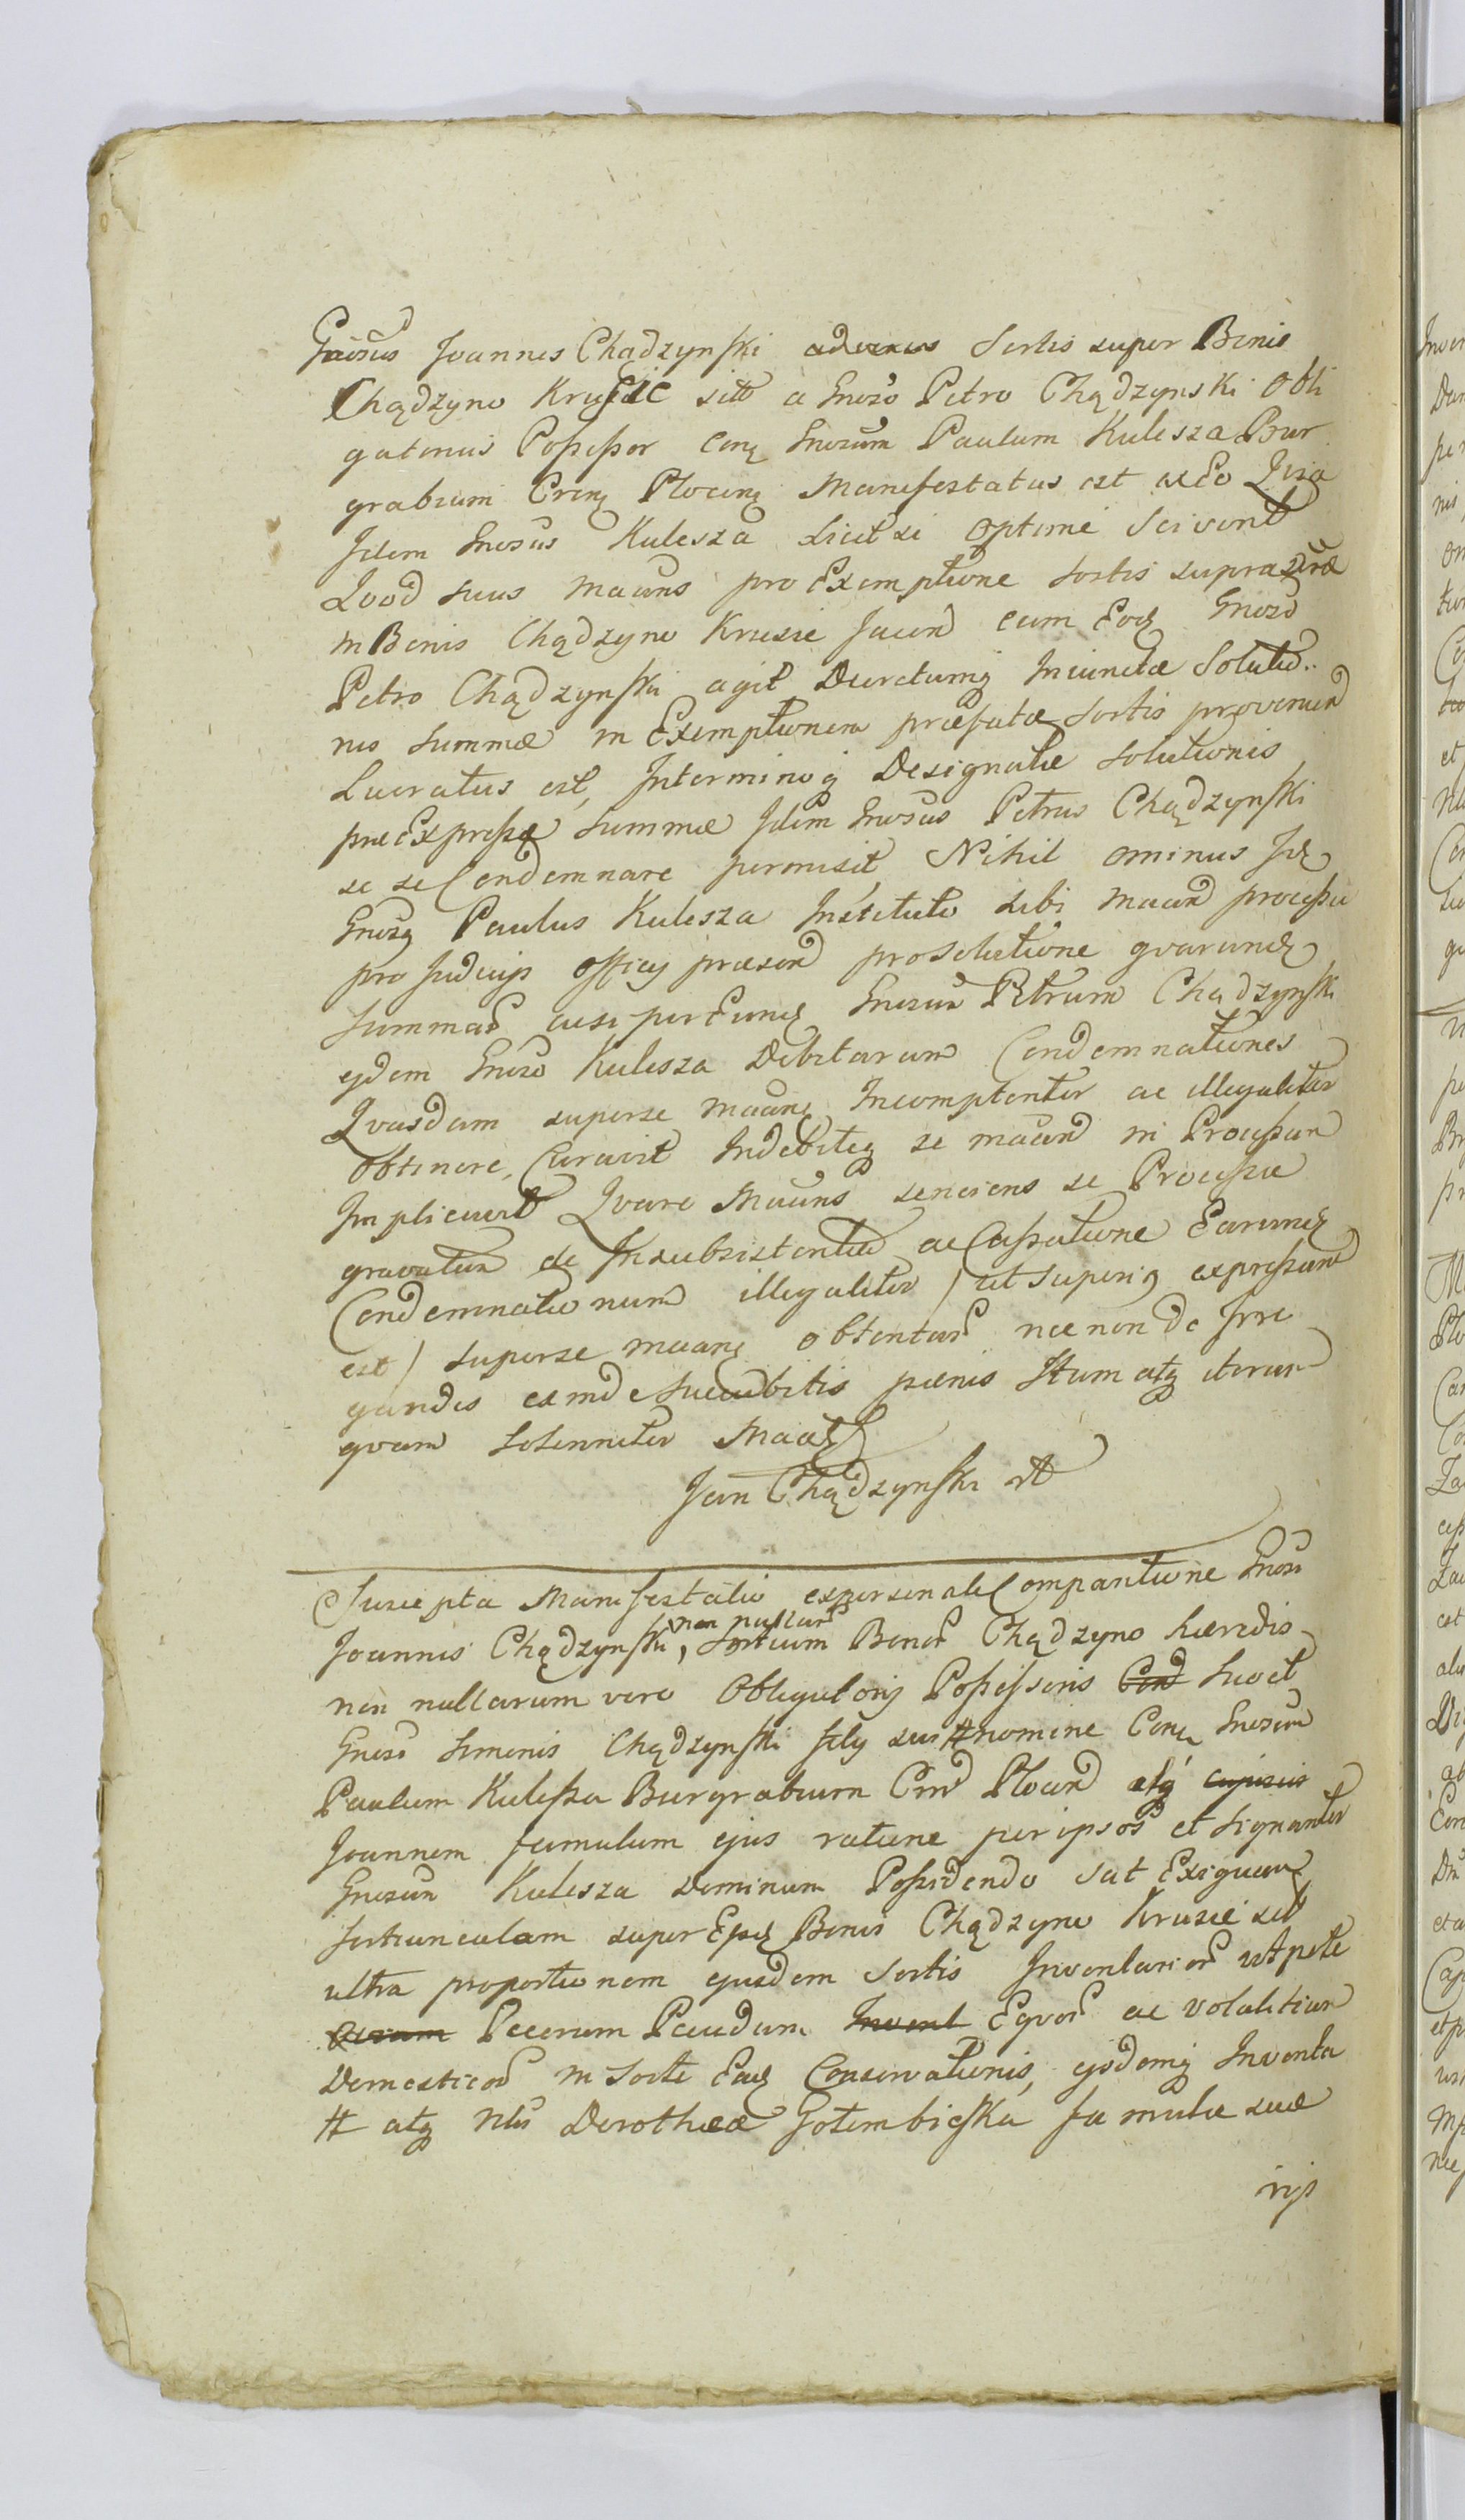 Gnosus Joannes Chądzynski advenus Sortis super Bonis
Chądzyno Krusie sitt a Gnoso Petro Chądzynski Obli
gatorius Possessor Conq Gnosum Paulum Kulesza Bur
grabium Crenq Plocenq Manifestatus est ex Eo Qvia
Idem Gnosus Kulesza Licet si optime Sciverit
Qvod suus maans pro Exemptione sortis supradictæ
in Bonis Chądzyno Krusie Jacend cum Eodq Gnoso
Petro Chądzynski agit Decretumq Iniunctæ Solutio..
nis summæ in Exemptionem præfatæ sortis provenien
Lucratus est, Interminoq Designatæ solutionis
præExpressæ summæ Idem Gnosus Petrus Chądzynski
se se Condemnare permisit, Nihil ominus Idq
Gnosq Paulus Kulesza Instituto sibi maand processu
pro Judicijs officij præsend pro Solutione qvarundq
summar ac si per Eundq Gnosum Petrum Chądzynski
ejdem Gnoso Kulesza Debitarum Condemnationes
Qvasdam superse maanq Incomptenter ac illegaliter
obtinere, Curavit Indebiteq se maand in Processum
Implicavit Qvare Maans senciens se Processu
gravatum de Insubsistentia ac Cassatione Earundq
Condemnationum illegaliter / ut superiq expressum
est / superse maanq obtentar nec non de Irro
gandis eamde succubitis pænis Itum atq iterum
qvam solenniter Maatq
Jan Chądzynski mp
Suscepta Manifestatio expersonali Comparitione Gnosi
non nullar
Joannis Chądzynski, Sortium Bonor Chądzyno hæredis
non nullarum vero Obligatorij Possessoris Cond Suo et
Gnosi Simonis Chądzynski filij sui # nomine Conq Gnosum
Paulum Kulessa Burgrabium Crnd Plocend atq cujusvis
Joannem famulum ejus ratione per ipsos et signanter
Gnosum Kulesza Dominum Possidendo sat Exiguamq
sortiunculam super Ejsdq Bonis Chądzyno Krusie sitt
ultra proportionem ejusdem sortis Inventarior utpote
Pecorum Pecudum Invent Eqvor ac volatilium
Domesticor in Sorte Eadq Conservationis, ejsdemq Inventa
# atq Nlis Dorotheæ Gołembieska famulæ suæ
rijs